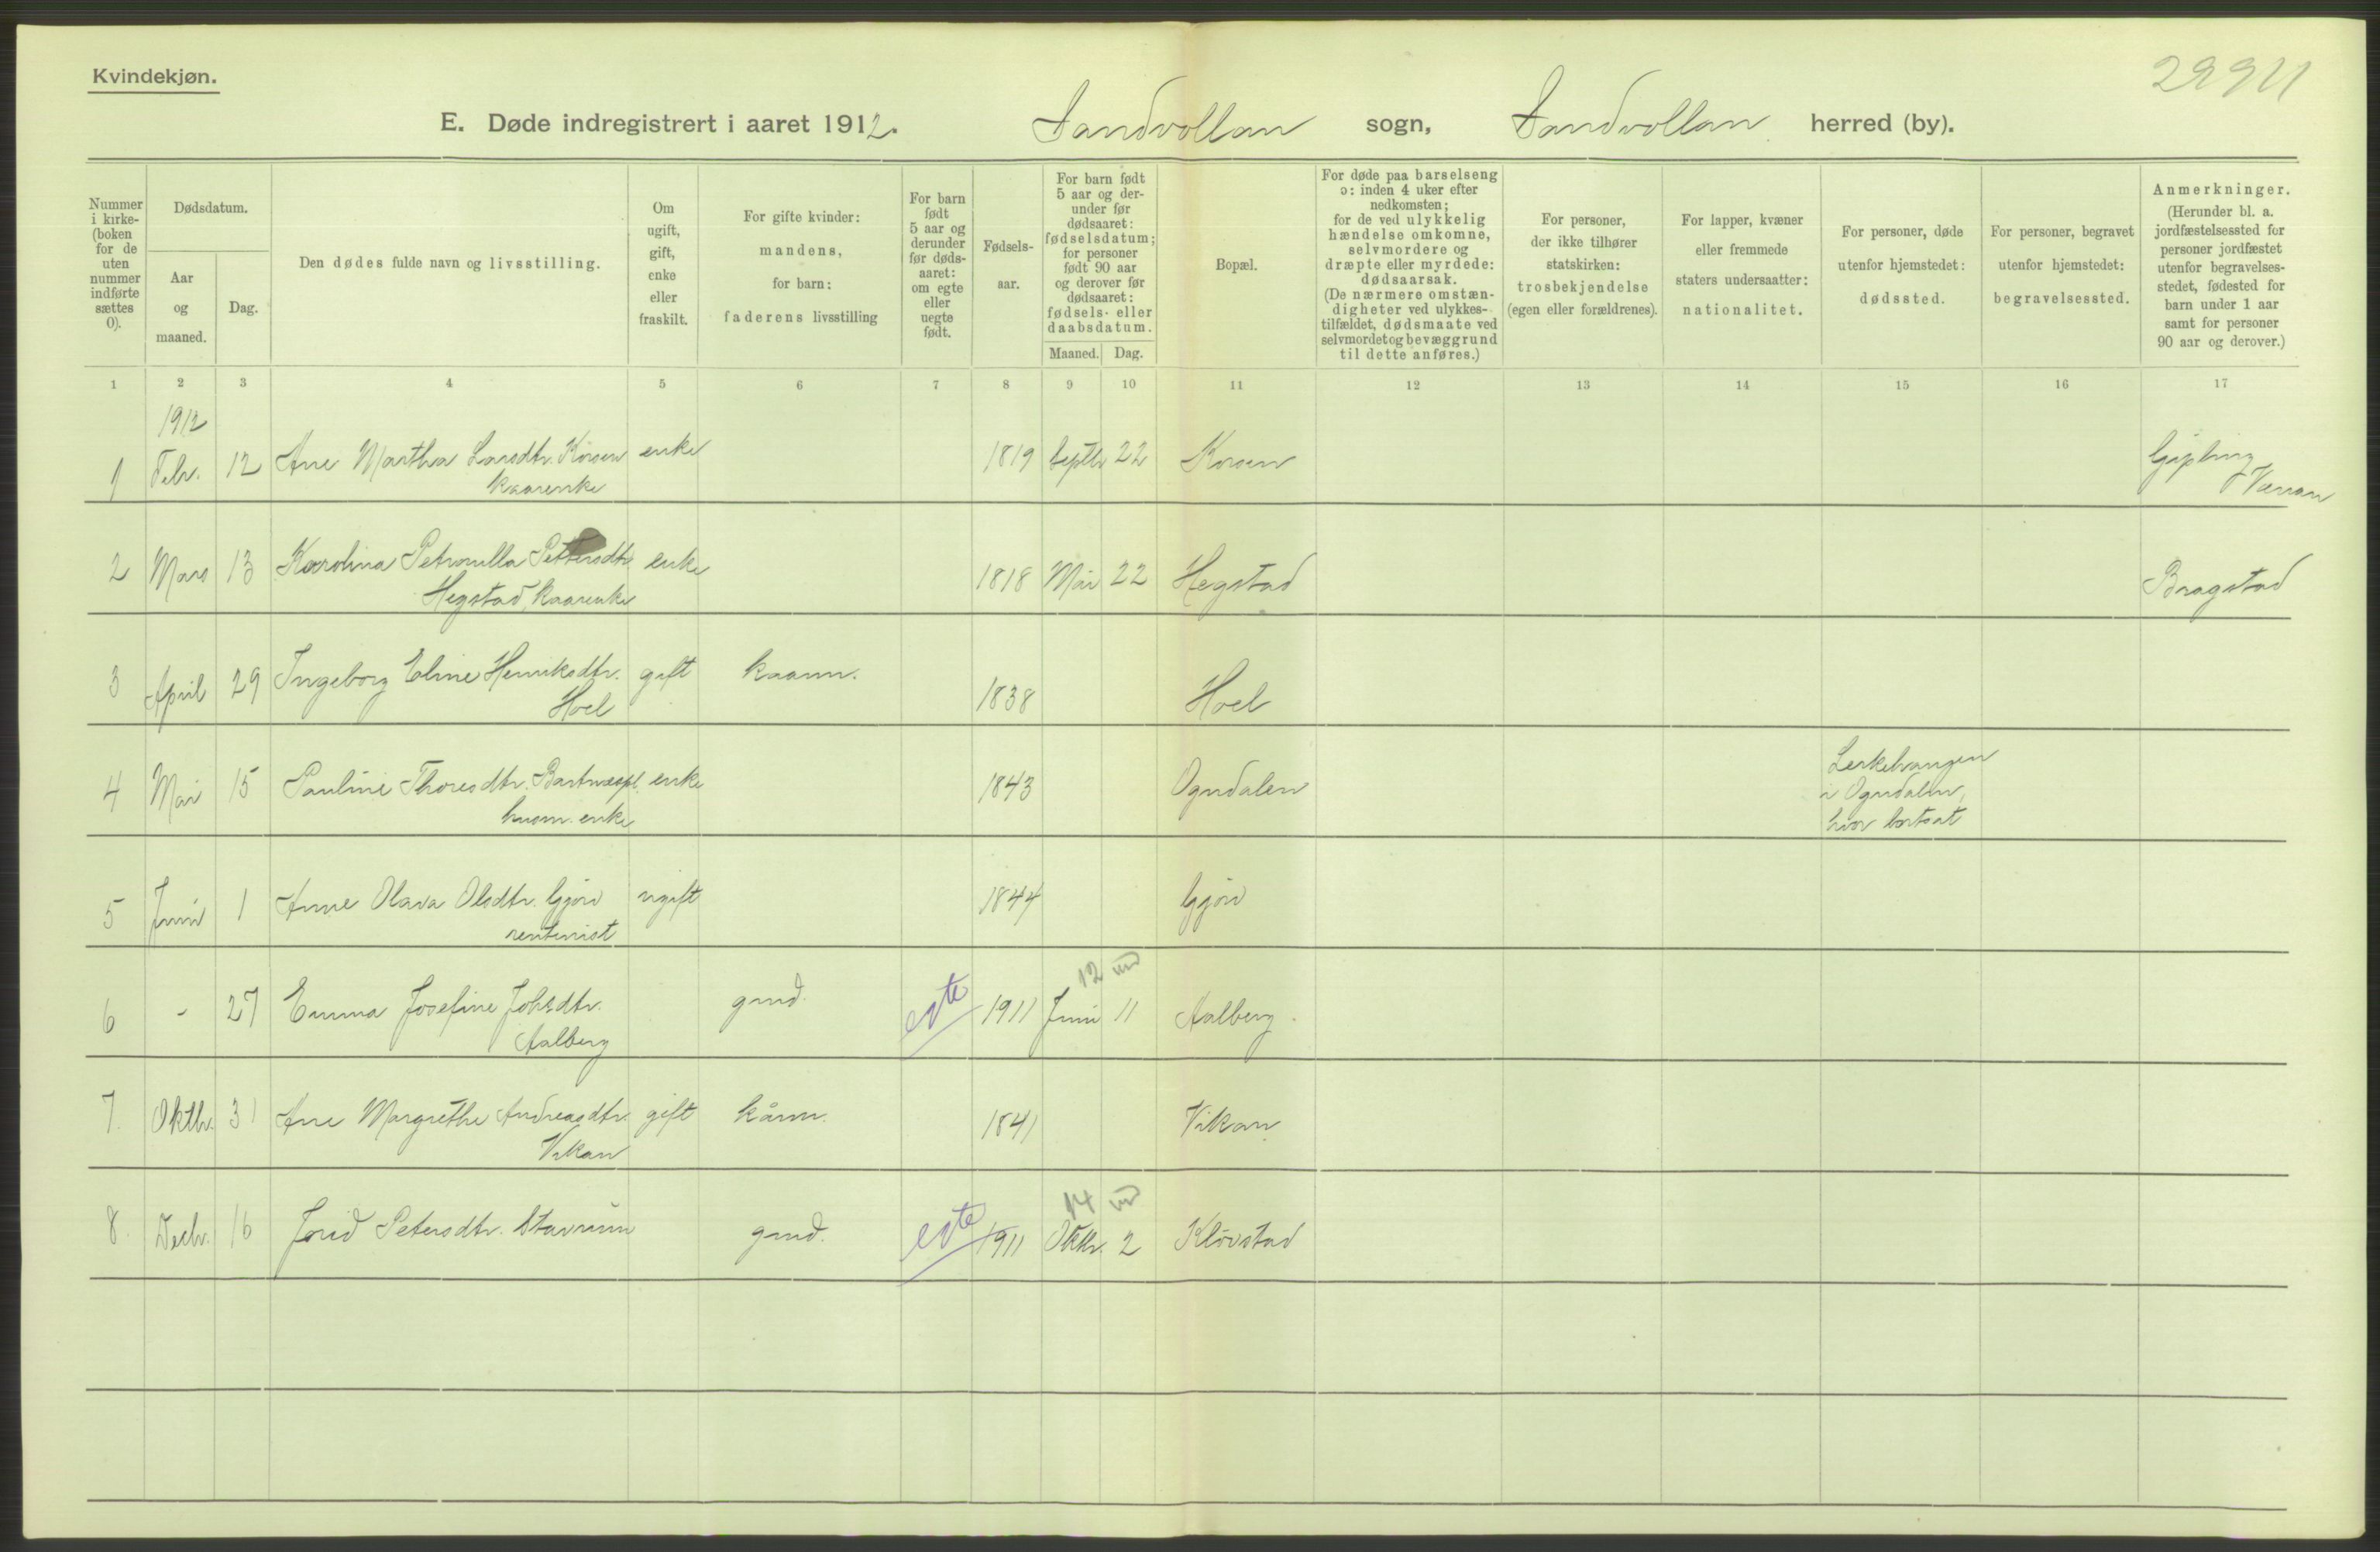 Kvindekjøn.
E. Døde indregistrert i aaret 1912. Sandvollan sogn, Sandvollan herred (by).
Nummer i kirke-(boken for de uten nummer indførte sættes 0).
Dødsdatum.
Aar og maaned.
Dag.
Den dødes fulde navn og livsstilling.
Om ugift, gift, enke eller fraskilt.
For gifte kvinder: mandens, for barn: faderens livsstilling
For barn født 5 aar og derunder før døds-aaret: om egte eller uegte født.
Fødsels-aar.
For barn født 5 aar og der-under før dødsaaret: fødselsdatum; for personer født 90 aar og derover før dødsaaret: fødsels- eller daabsdatum.
Maaned. Dag.
Bopæl.
For døde paa barselseng ɔ: inden 4 uker efter nedkomsten; for de ved ulykkelig hændelse omkomne, selvmordere og dræpte eller myrdede: dødsaarsak. (De nærmere omstæn-digheter ved ulykkes-tilfældet, dødsmaate ved selvmordet og bevæggrund til dette anføres.)
For personer, der ikke tilhører statskirken: trosbekjendelse (egen eller forældrenes).
For lapper, kvæner eller fremmede staters undersaatter: nationalitet.
For personer, døde utenfor hjemstedet: dødssted.
For personer, begravet utenfor hjemstedet: begravelsessted.
Anmerkninger. (Herunder bl. a. jordfæstelsessted for personer jordfæstet utenfor begravelses-stedet, fødested for barn under 1 aar samt for personer 90 aar og derover.)
1 2 3 4 5 6 7 8 9 10 11 12 13 14 15 16 17
1912
1 Febr. 12 Ane Martha Larsdtr. Korsen enke 1819 Septbr 22 Korsen
kaarenke
2 Mars 13 Karolina Petronilla Pettersdtr. enke 1818 Mai 22 Hegstad Bragstad
Hegstad, kaarenke
3 April 29 Ingeborg Eline Henriksdtr. gift kaarm. 1838 Hoel
Hoel
4 Mai 15 Pauline Thoresdtr. Bartnespl. enke 1843 Ogndalen
husm. enke
i Ogndalen,
hvor bortsat
5 Juni 1 Anne Olava Olsdtr. Gjørv ugift 1844 Gjørv
rentenist
12 md
6 - 27 Emma Josefine Johsdtr. gmd. egte 1911 Juni 11 Aalberg.
Aalberg
7. Oktbr. 31 Ane Margrethe Andreasdtr. gift kårm. 1841 Vikan
Vikan
14 md
8. Decbr. 16 Jorid Petersdtr. Stavrum gmd. egte 1911 Oktbr. 2 Kløvstad